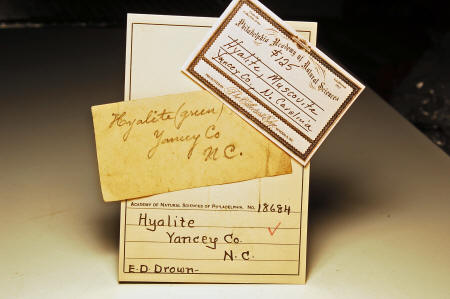 Philadelphia Academy of Natural Sciences
$125
Hyalite, Muscovite
Yancey Co., N. Carolina
Hyalite (green)
Yancey Co
N.C.
ACADEMY OF NATURAL SCIENCES OF PHILADELPHIA. NO. 18684
Hyalite
Yancey Co.
N.C.
E.D. Drown-